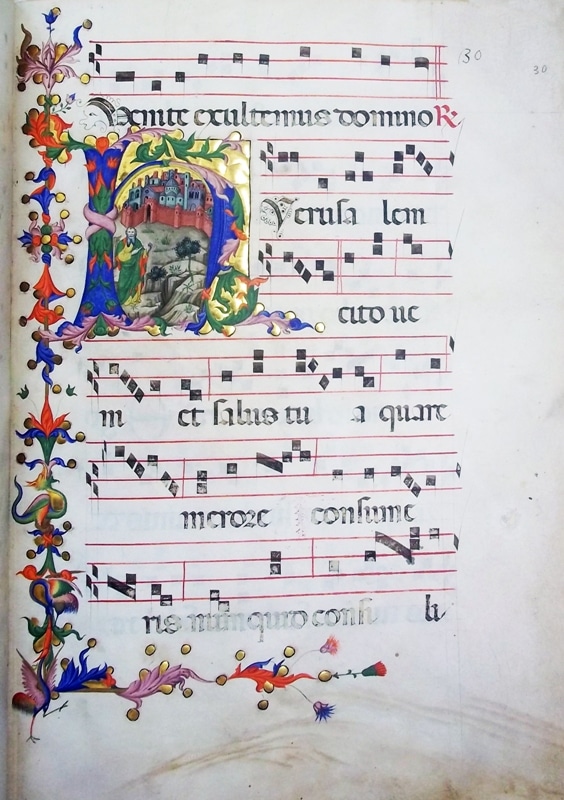 30
30
Venite exultemus domino R
Hyerusa lem
cito ue
ni et salus tu a quare
merore consume
ris numquid consi li